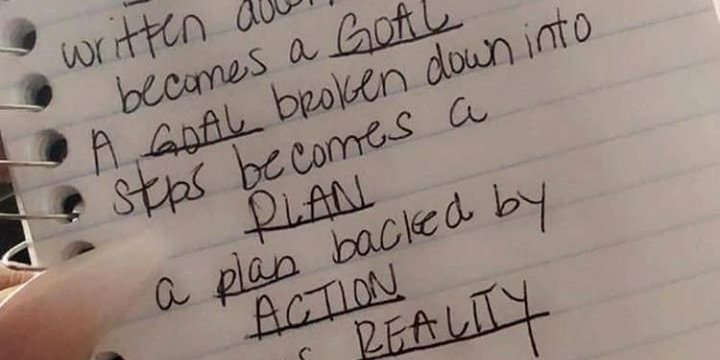 written down
becomes a GOAL
A GOAL broken down into
steps becomes a
PLAN
a plan backed by
ACTION
REALITY